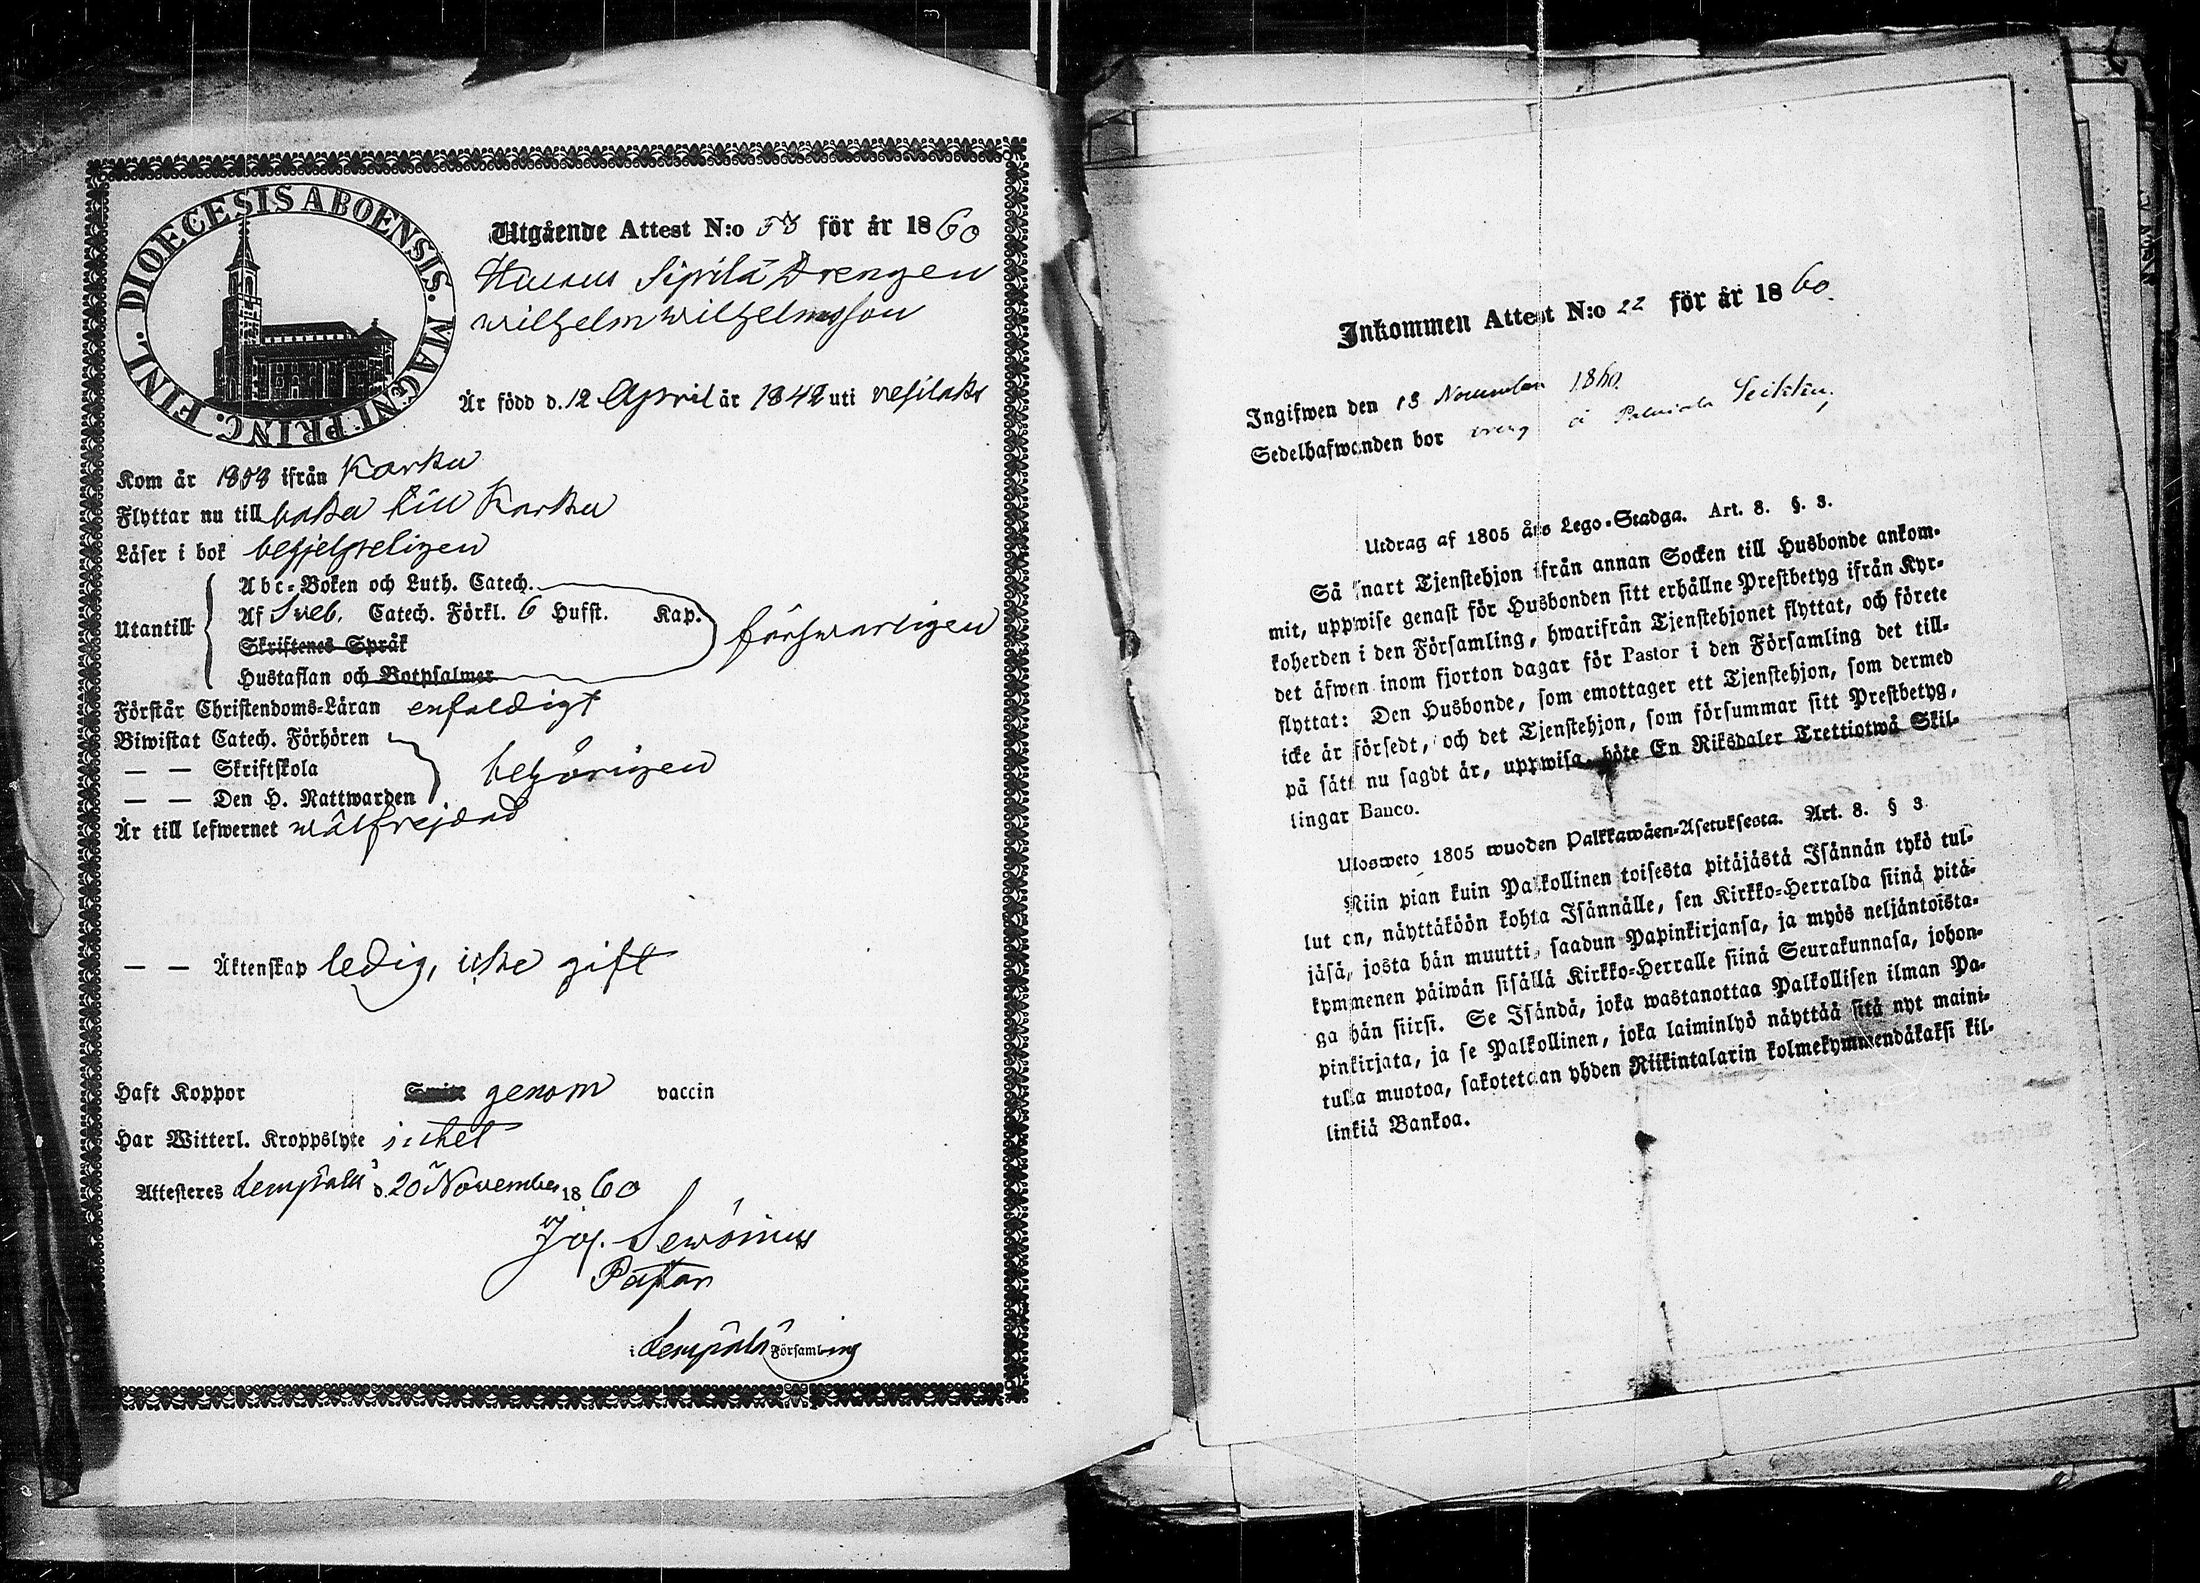 DIOECESIS ABOENSIS. MAGNI PRINC. FINL.
Utgående Attest N:o 58 för år 1860
Sipilä Drengen
Wilhelm Wilhelmsson
Är född d. 12 April år 1842 uti Vesilaks
Kom år 1858 ifrån Karku
Flyttar nu till baka till Karku
Läser i bok behjelpeligen
Utantill
Abc-Boken och Luth. Catech.
Af Sveb. Catech. Förkl. 6 Hufst. Kap.
Skriftenes Språk
Hustaflan och Botpsalmer
försvarligen
Förstår Christendoms-Läran enfaldigt
Biwistat Catech. Förhören
— — Skriftskola
— — Den H. Nattwarden
behörigen
Är till lefwernet wälfrejdad
— — Äktenskap ledig, icke gift
Haft Koppor genom vaccin
Har Witterl. Kroppslyte intet
Attesteres Lempälä d. 20 November 1860
Jos. Sewonius
Pastor
i Lempälä Församling
Inkommen Attest N:o 22 för år 1860.
Ingifwen den 13 November 1860.
Sedelhafwanden bor dreng å
Utdrag af 1805 års Lego-Stadga. Art. 8. §. 3.
Så snart Tjenstehjon ifrån annan Socken till Husbonde ankom-
mit, uppwise genast för Husbonden sitt erhållne Prestbetyg ifrån Kyr-
koherden i den Församling, hwarifrån Tjenstehjonet flyttat, och förete
det äfwen inom fjorton dagar för Pastor i den Församling det till-
flyttat: Den Husbonde, som emottager ett Tjenstehjon, som dermed
icke är försedt, och det Tjenstehjon, som försummar sitt Prestbetyg,
på sätt nu sagdt är, uppwisa, böte En Riksdaler Trettiotwå Skil-
lingar Banco.
Ulosweto 1805 wuoden Palkkawäen-Asetuksesta. Art. 8. § 3.
Niin pian kuin Palkollinen toisesta pitäjästä Isännän tykö tul-
lut on, näyttäköön kohta Isännälle, sen Kirkko-Herralda siinä pitä-
jäsä, josta hän muutti, saadun Papinkirjansa, ja myös neljäntoista-
kymmenen päiwän sisällä Kirkko-Herralle siinä Seurakunnasa, johon-
ga hän siirsi. Se Isändä, joka wastanottaa Palkollisen ilman Pa-
pinkirjata, ja se Palkollinen, joka laiminlyö näyttää sitä nyt maini-
tulla muotoa, sakotetaan yhden Riikintalarin kolmekymmendäkaksi kil-
linkiä Bankoa.